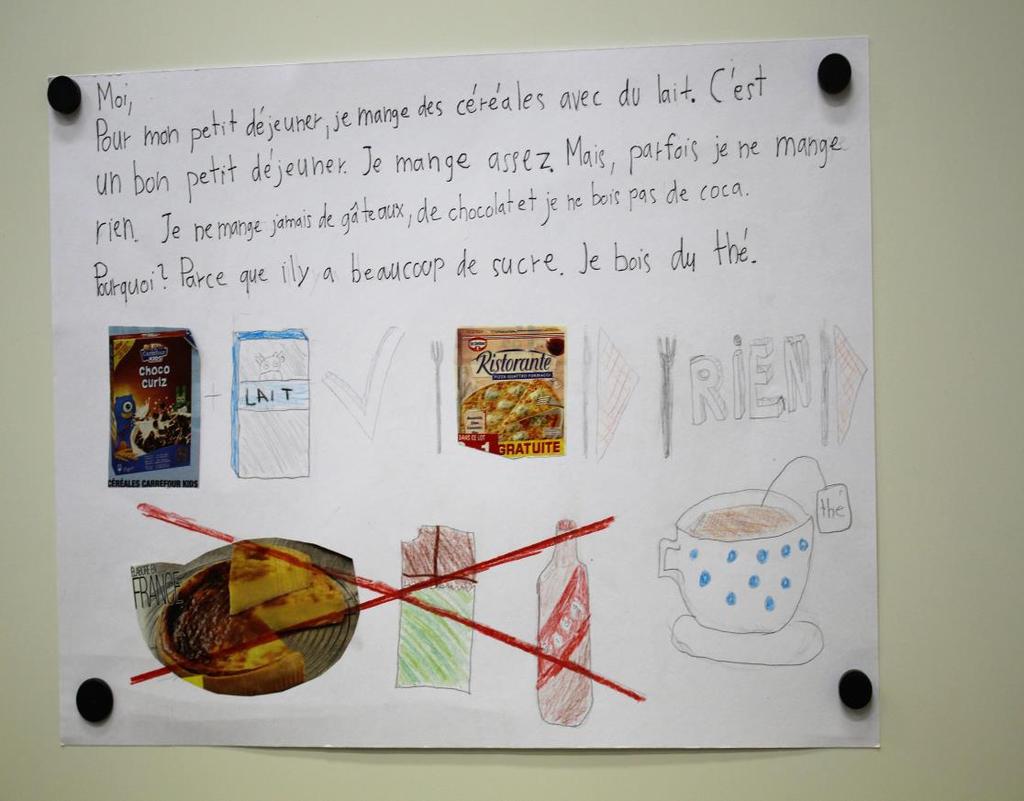 Moi,
Pour mon petit déjeuner, je mange des céréales avec du lait. C'est
un bon petit déjeuner. Je mange assez. Mais, parfois je ne mange
rien. Je ne mange jamais de gâteaux, de chocolat et je ne bois pas de coca.
Pourquoi? Parce que il y a beaucoup de sucre. Je bois du thé.
Carrefour
KIDS
CHOCO
curiz
CÉRÉALES CARREFOUR KIDS
LAIT
Ristorante
PIZZA QUATTRO FORMAGGI
DANS CE LOT
1
GRATUITE
RIEN
thé
ÉLABORÉ EN
FRANCE